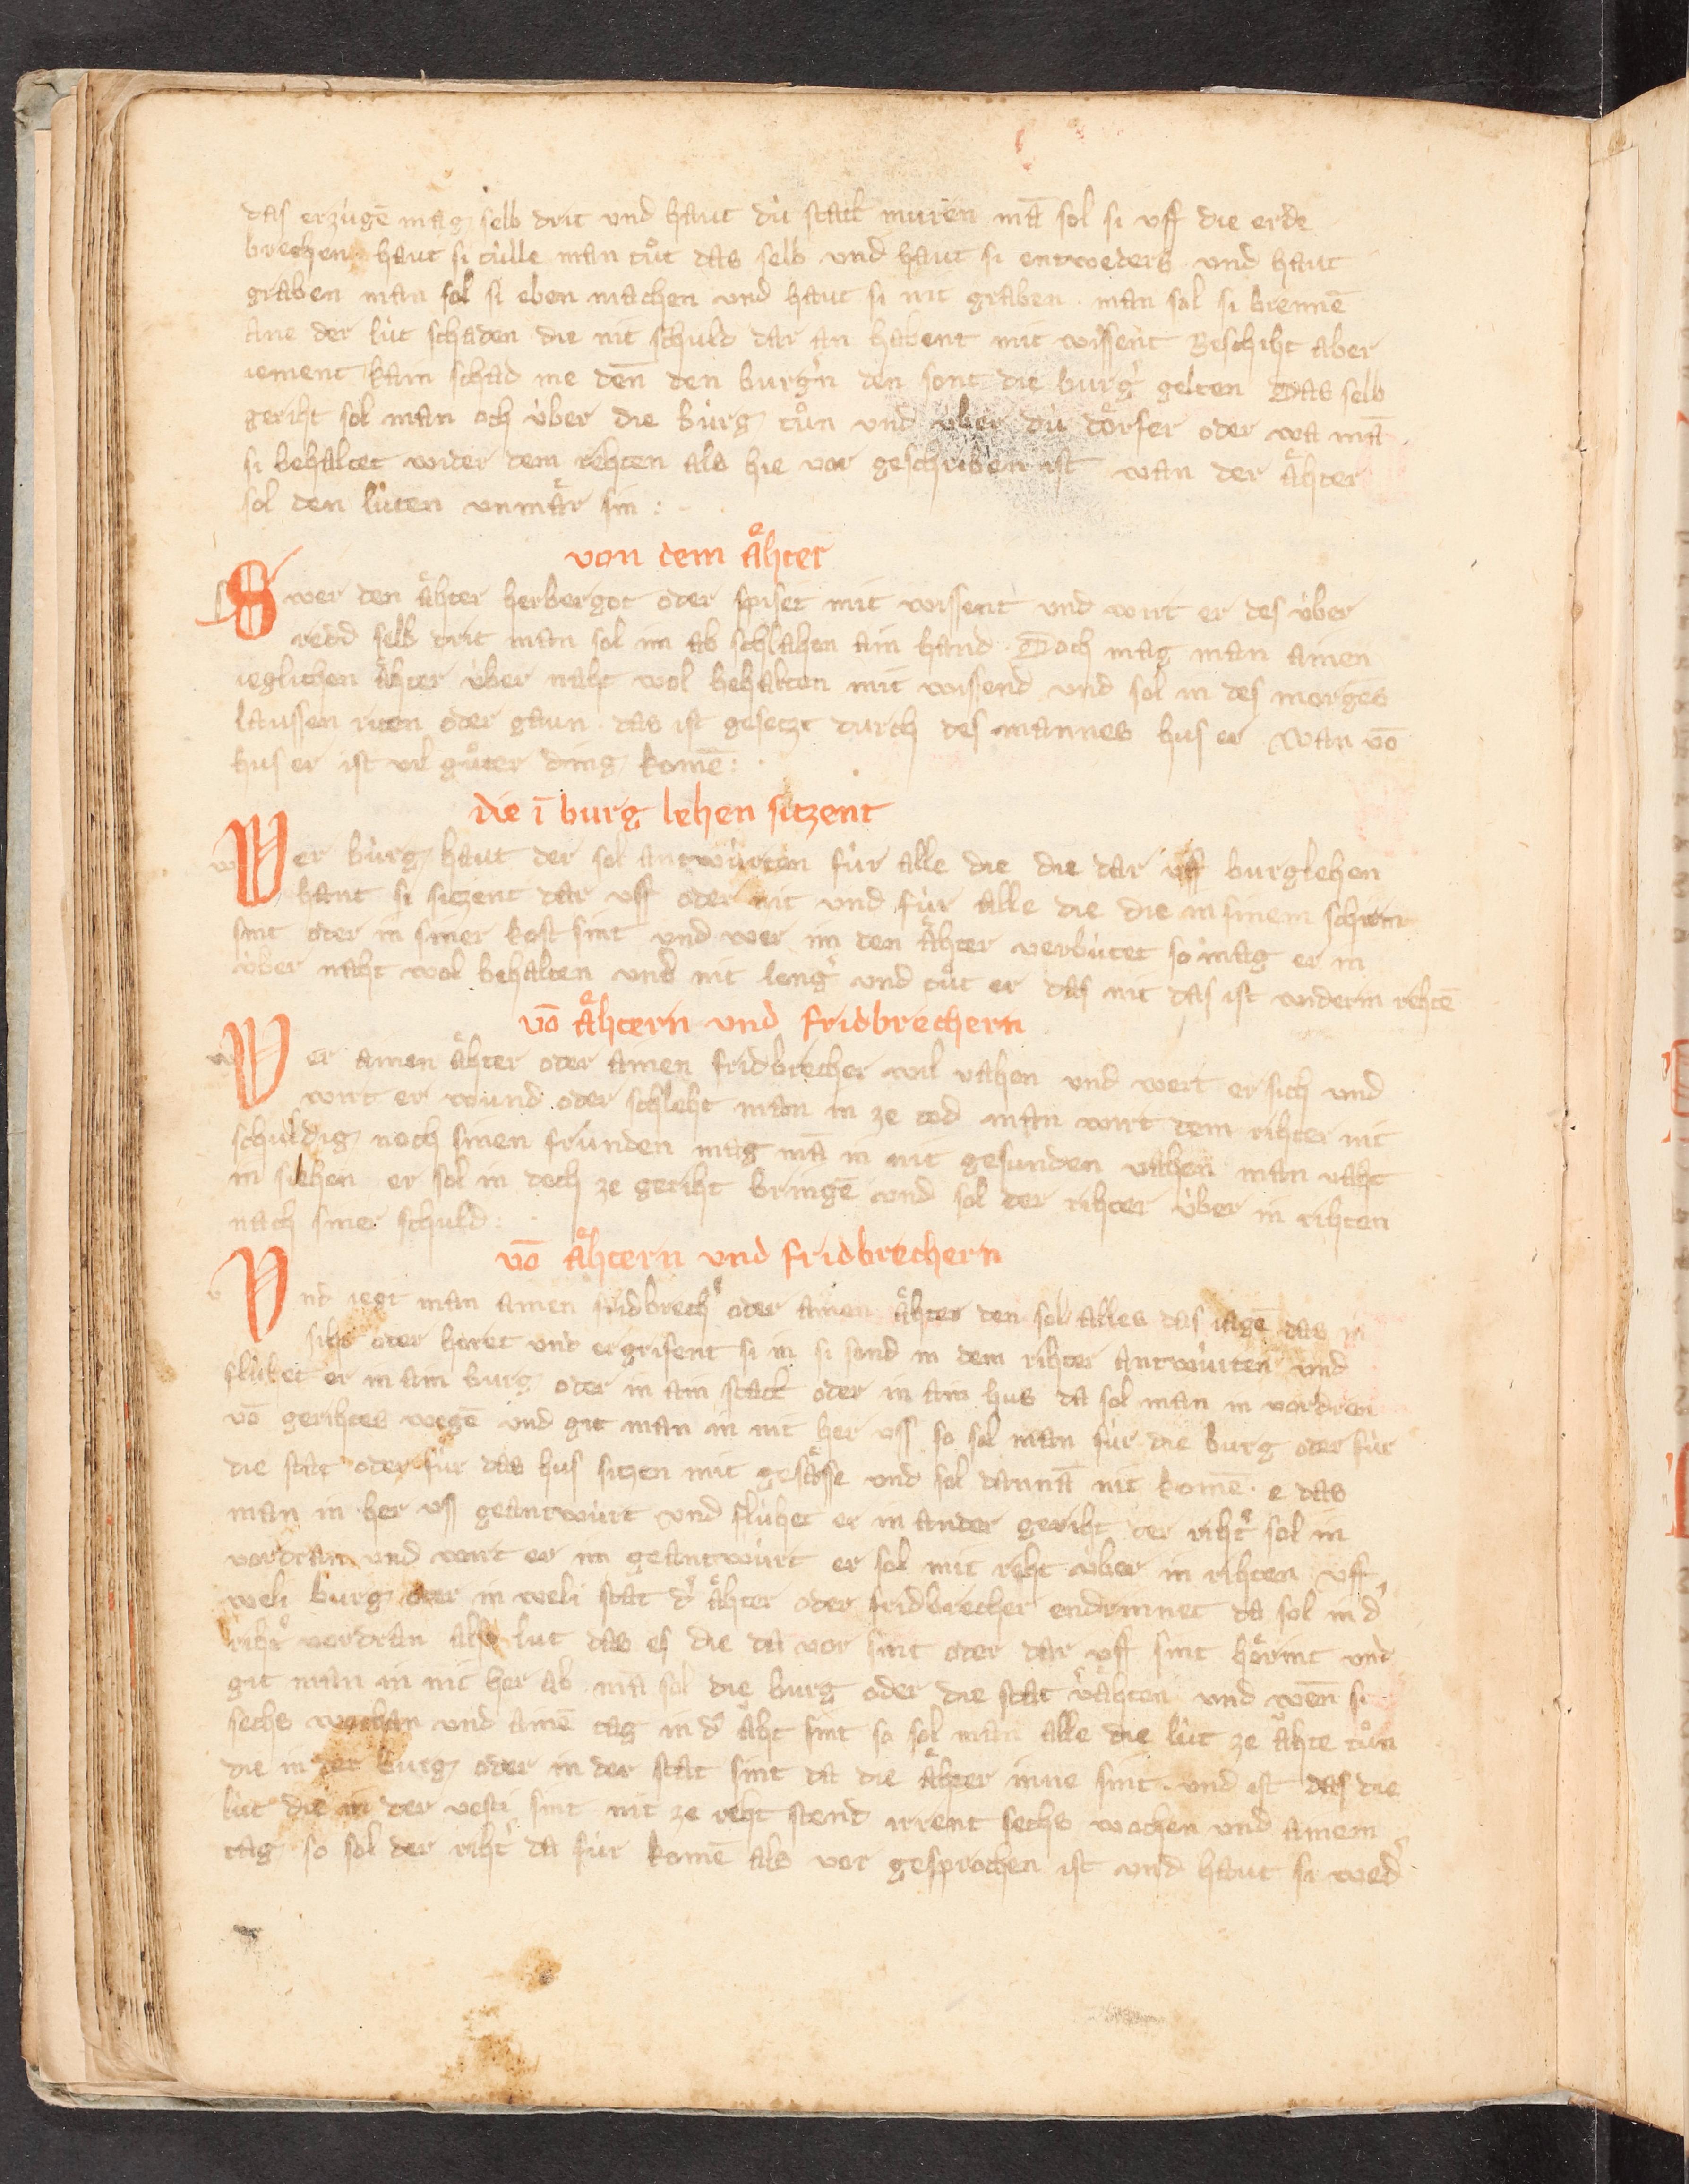 das erzúgē mag selb drit und haut dú statt muren mā sol si vff die erde
brechen haut si túlle man tůt das selb und haut si entweders und haut
graben man sol si eben machen und haut si nit graben man sol si brennē
ane der lút schaden die nit schuld dar an habent mit wissent Beschiht aber
iement kain schad me deñ den burgʼn den sont die burgʼ gelten Das selb
geriht sol man och úber die búrg tůn und úber dú dörfer oder wa mā
si behaltet wider dem rehten als hie vor geschriben ist wan der aͤhter
sol den lúten unmaͤr sin :
von dem aͤhter
S wer den aͤhter herbergot oder spiset mit wissent und wirt er des úber
redd selb drit man sol im ab schlahen ain hand Doch mag man ainen
ieglichen aͤhter úber naht wol behalten mit wissend und sol in des morgēs
laussen riten oder gaun das ist gesetzt durch des mannes hus er Wan vō
hus er ist vil gůter ding komē :
die ī burg lehen sitzent
W er búrg haut der sol antwúrten fúr alle die die dar vff burglehen
hant si sitzent dar vff oder nit und fúr alle die die in sinem schirm
sint oder in siner kost sint und wer im den aͤhter verbútet so mag er in
úber naht wol behalten und nit lengʼ und tůt er das nit das ist vnderm rehtē
vō aͤhtern und fridbrechern
W er ainen aͤhter oder ainen fridbrecher wil vahen und wert er sich und
wirt er wund oder schleht man in ze tod man wirt dem rihter nit
schuldig noch sinen frúnden mag mā in nit gesunden vahen man vaht
in siehen er sol in doch ze geriht bringē und sol der rihter úber in rihten
nach siner schuld :
vō aͤhtern und fridbrechern
V nd iegt man ainen fridbrechʼ oder ainen aͤhter den sol alles das iagē das in
siht oder horet und ergrifent si in si sond in dem rihter antwúrten und
flúhet er in ain burg oder in ain statt oder in ain hus da sol man in vordren
vō gerihtes wegē und git man in nit her vss so sol man fúr die burg oder fúr
die stat oder fúr das hus sitzen mit gesaͤsse und sol dannā nit komē e das
man in her vss geantwúrt und flúhet er in ander geriht der rihtʼ sol in
vordran und wirt er im geantwúrt er sol mit reht úber in rihten vff
weli burg oder in weli stat dʼ aͤhter oder fridbrecher endrinnet da sol in dʼ
rihtʼ vordran als lut das es die da vor sint oder dar vff sint hörint und
git man in nit her ab mā sol die burg oder die stat vʼaͤhten und weñ si
sechs wochan und ainē tag in dʼ aͤht sint so sol man alle die lút ze aͤhte tůn
die in der burg oder in der stat sint da die aͤhter inne sint und ist das die
lút die in der vesti sint nit ze reht stend irrent sechs wochen und ainem
tag so sol der rihtʼ da fúr komē als vor gesprochen ist und haut si wedʼ